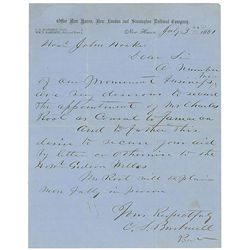 Office New Haven, New London and Stonington Railroad Company,
New Haven, July 3rd 1861
Hon. John Hooker
Dear Sir
A number
of our prominent business men
are very desirous to secure
the appointment of Mr Charles
Root as Consul to Jamaica
And to further this
desire to secure your aid
by letter or otherwise to the
Hon. Gideon Welles
Mr Root will explain
more fully in person
Yours Respectfully
C. S. Bushnell